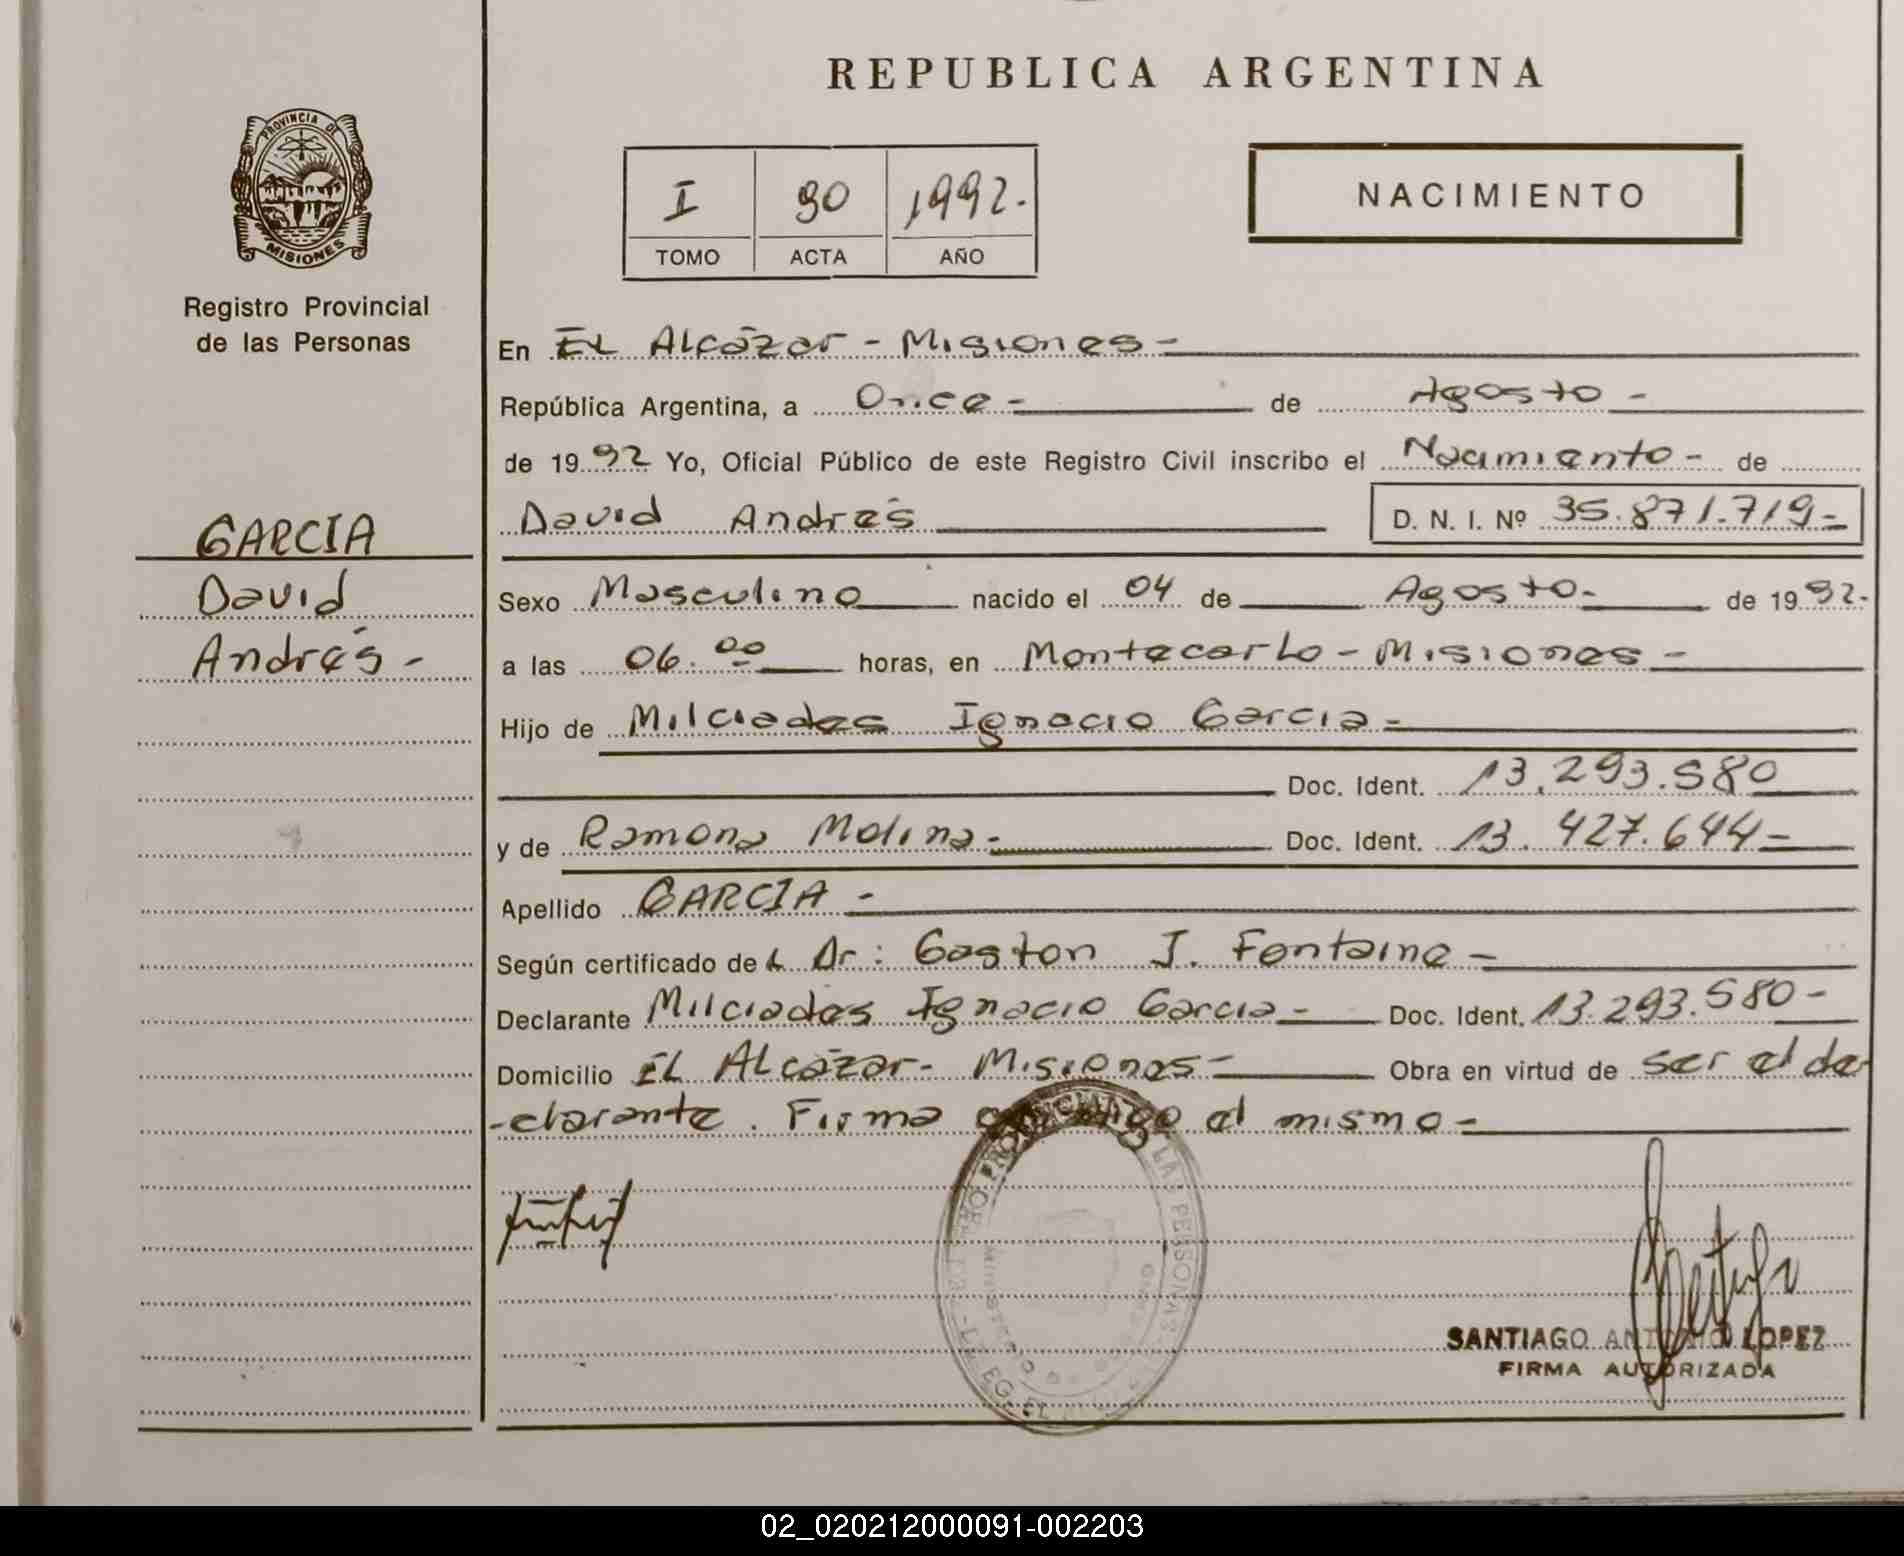 REPUBLICA ARGENTINA
PROVINCIA DE
MISIONES
Registro Provincial
de las Personas
I 90 1992.-
TOMO ACTA AÑO
NACIMIENTO
En EL Alcázar - Misiones -
República Argentina, a Once - de Agosto -
de 1992 Yo, Oficial Público de este Registro Civil inscribo el Nacimiento - de
David Andrés D. N. I. Nº 35.871.719-
GARCIA
David
Andrés -
Sexo Masculino nacido el 04 de Agosto.- de 1992.-
a las 06.00 horas, en Montecarlo - Misiones -
Hijo de Milciades Ignacio Garcia -
Doc. Ident. 13.293.580
y de Ramona Molina - Doc. Ident. 13.427.644-
Apellido GARCIA -
Según certificado del Dr: Gaston J. Fontaine -
Declarante Milciades Ignacio Garcia - Doc. Ident. 13.293.580-
Domicilio EL Alcázar - Misiones - Obra en virtud de ser el de
-clarante. Firma el mismo -
LAS PERSONAS
SANTIAGO ANTONIO LOPEZ
FIRMA AUTORIZADA
02_020212000091-002203